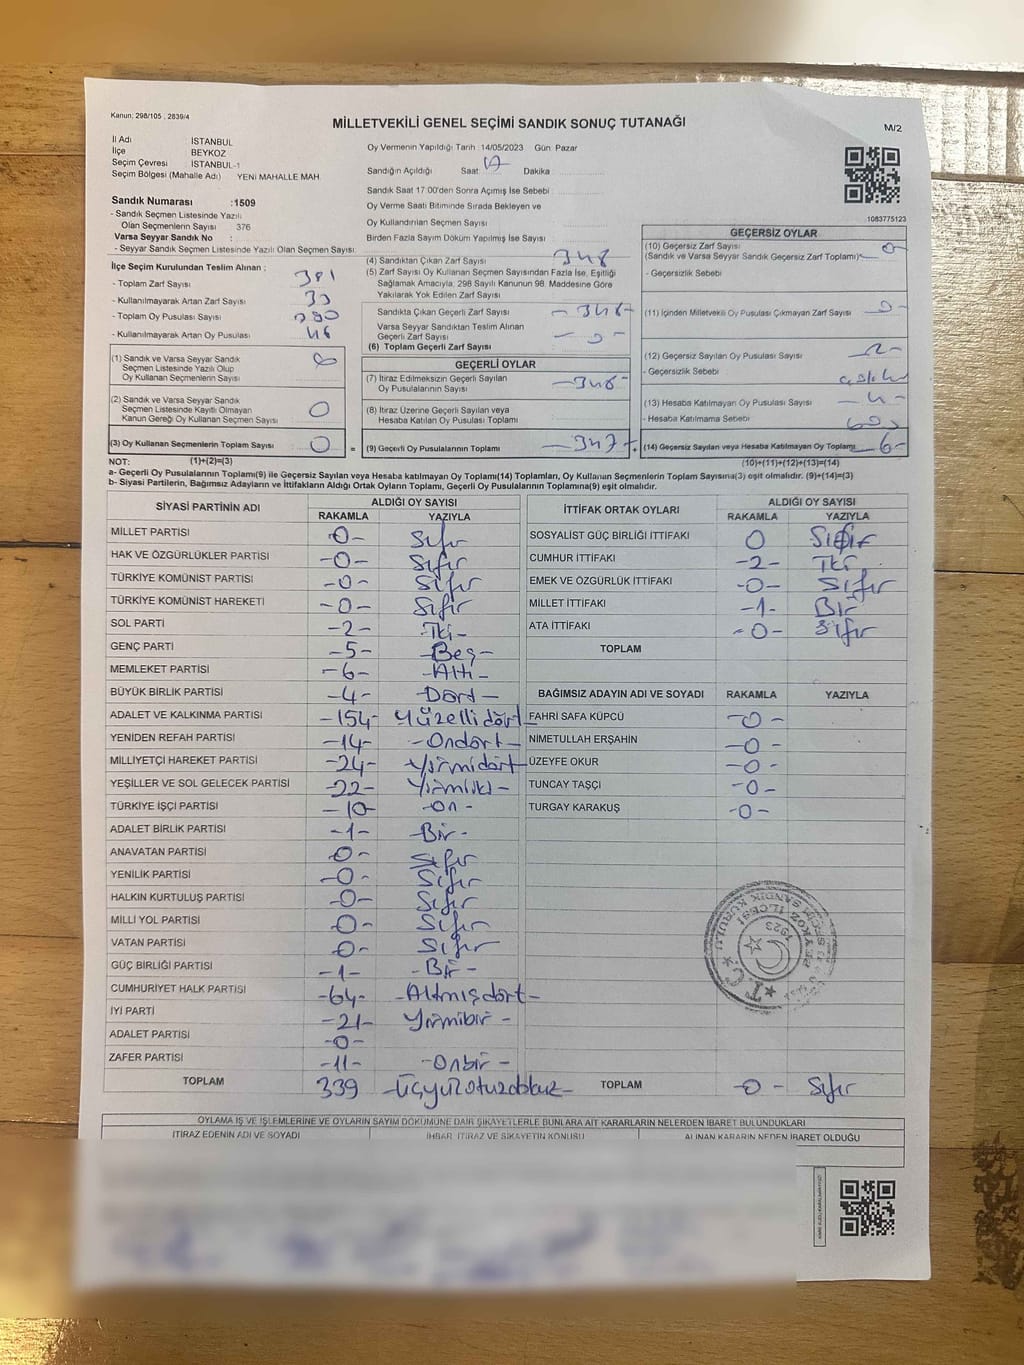 Kanun: 298/105 , 2839/4
MİLLETVEKİLİ GENEL SEÇİMİ SANDIK SONUÇ TUTANAĞI
M/2
İl Adı İSTANBUL
İlçe BEYKOZ
Seçim Çevresi İSTANBUL-1
Seçim Bölgesi (Mahalle Adı) YENİ MAHALLE MAH.
Sandık Numarası :1509
- Sandık Seçmen Listesinde Yazılı
Olan Seçmen Sayısı 376
Varsa Seyyar Sandık No :
- Seyyar Sandık Seçmen Listesinde Yazılı Olan Seçmen Sayısı:
Oy Vermenin Yapıldığı Tarih : 14/05/2023 Gün: Pazar
Sandığın Açıldığı Saat: 17 Dakika
Sandık Saat 17:00'den Sonra Açılmış İse Sebebi :
Oy Verme Saati Bitiminde Sırada Bekleyen ve
Oy Kullandırılan Seçmen Sayısı :
Birden Fazla Sayım Döküm Yapılmış İse Sayısı :
1083775123
İlçe Seçim Kurulundan Teslim Alınan :
- Toplam Zarf Sayısı : 381
- Kullanılmayarak Artan Zarf Sayısı : 33
- Toplam Oy Pusulası Sayısı :
- Kullanılmayarak Artan Oy Pusulası : 46
(1) Sandık ve Varsa Seyyar Sandık
Seçmen Listesinde Yazılı Olup
Oy Kullanan Seçmenlerin Sayısı :
(2) Sandık ve Varsa Seyyar Sandık
Seçmen Listesinde Kayıtlı Olmayan
Kanun Gereği Oy Kullanan Seçmen Sayısı : 0
(3) Oy Kullanan Seçmenlerin Toplam Sayısı : 0
(1)+(2)=(3)
(4) Sandıktan Çıkan Zarf Sayısı : 348
(5) Zarf Sayısı Oy Kullanan Seçmen Sayısından Fazla İse, Eşitliği
Sağlamak Amacıyla, 298 Sayılı Kanunun 98. Maddesine Göre
Yakılarak Yok Edilen Zarf Sayısı :
Sandıkta Çıkan Geçerli Zarf Sayısı : - 348 -
Varsa Seyyar Sandıktan Teslim Alınan
Geçerli Zarf Sayısı : - 0 -
(6) Toplam Geçerli Zarf Sayısı :
GEÇERLİ OYLAR
(7) İtiraz Edilmeksizin Geçerli Sayılan
Oy Pusulalarının Sayısı :
(8) İtiraz Üzerine Geçerli Sayılan veya
Hesaba Katılan Oy Pusulası Toplamı :
= (9) Geçerli Oy Pusulalarının Toplamı : - 342 - +
GEÇERSİZ OYLAR
(10) Geçersiz Zarf Sayısı : 0
(Sandık ve Varsa Seyyar Sandık Geçersiz Zarf Toplamı)
- Geçersizlik Sebebi :
(11) İçinden Milletvekili Oy Pusulası Çıkmayan Zarf Sayısı : - 0 -
(12) Geçersiz Sayılan Oy Pusulası Sayısı : - 2 -
- Geçersizlik Sebebi :
(13) Hesaba Katılmayan Oy Pusulası Sayısı : - 4 -
- Hesaba Katılmama Sebebi : boş
(14) Geçersiz Sayılan veya Hesaba Katılmayan Oy Toplamı : - 6 -
(10)+(11)+(12)+(13)=(14)
NOT:
a- Geçerli Oy Pusulalarının Toplamı(9) ile Geçersiz Sayılan veya Hesaba katılmayan Oy Toplamı(14) Toplamları, Oy Kullanan Seçmenlerin Toplam Sayısına(3) eşit olmalıdır. (9)+(14)=(3)
b- Siyasi Partilerin, Bağımsız Adayların ve İttifakların Aldığı Ortak Oyların Toplamı, Geçerli Oy Pusulalarının Toplamına(9) eşit olmalıdır.
SİYASİ PARTİNİN ADI ALDIĞI OY SAYISI
RAKAMLA YAZIYLA
MİLLET PARTİSİ -0- Sıfır
HAK VE ÖZGÜRLÜKLER PARTİSİ -0- Sıfır
TÜRKİYE KOMÜNİST PARTİSİ -0- Sıfır
TÜRKİYE KOMÜNİST HAREKETİ -0- Sıfır
SOL PARTİ -2- İki-
GENÇ PARTİ -5- -Beş-
MEMLEKET PARTİSİ -6- -Altı-
BÜYÜK BİRLİK PARTİSİ -4- -Dört-
ADALET VE KALKINMA PARTİSİ -154- Yüzellidört-
YENİDEN REFAH PARTİSİ -14- -Ondört-
MİLLİYETÇİ HAREKET PARTİSİ -24- -Yirmidört-
YEŞİLLER VE SOL GELECEK PARTİSİ -22- Yirmiiki-
TÜRKİYE İŞÇİ PARTİSİ -10- -On-
ADALET BİRLİK PARTİSİ -1- -Bir-
ANAVATAN PARTİSİ -0- Sıfır
YENİLİK PARTİSİ -0- Sıfır
HALKIN KURTULUŞ PARTİSİ -0- Sıfır
MİLLİ YOL PARTİSİ -0- Sıfır
VATAN PARTİSİ -0- Sıfır
GÜÇ BİRLİĞİ PARTİSİ -1- -Bir-
CUMHURİYET HALK PARTİSİ -64- -Altmışdört-
İYİ PARTİ -21- Yirmibir-
ADALET PARTİSİ -0-
ZAFER PARTİSİ -11- -Onbir-
TOPLAM 339 -Üçyüzotuzdokuz-
İTTİFAK ORTAK OYLARI ALDIĞI OY SAYISI
RAKAMLA YAZIYLA
SOSYALİST GÜÇ BİRLİĞİ İTTİFAKI 0 Sıfır
CUMHUR İTTİFAKI -2- İki
EMEK VE ÖZGÜRLÜK İTTİFAKI -0- Sıfır
MİLLET İTTİFAKI -1- Bir
ATA İTTİFAKI -0- Sıfır
TOPLAM
BAĞIMSIZ ADAYIN ADI VE SOYADI RAKAMLA YAZIYLA
FAHRİ SAFA KÜPCÜ -0-
NİMETULLAH ERŞAHİN -0-
ÜZEYFE OKUR -0-
TUNCAY TAŞÇİ -0-
TURGAY KARAKUŞ -0-
TOPLAM -0- Sıfır
T.C.
1923
OYLAMA İŞ VE İŞLEMLERİNE VE OYLARIN SAYIM DÖKÜMÜNE DAİR ŞİKAYETLERLE BUNLARA AİT KARARLARIN NELERDEN İBARET BULUNDUKLARI
İTİRAZ EDENİN ADI VE SOYADI İHBAR, İTİRAZ VE ŞİKAYETİN KONUSU ALINAN KARARIN NEDEN İBARET OLDUĞU